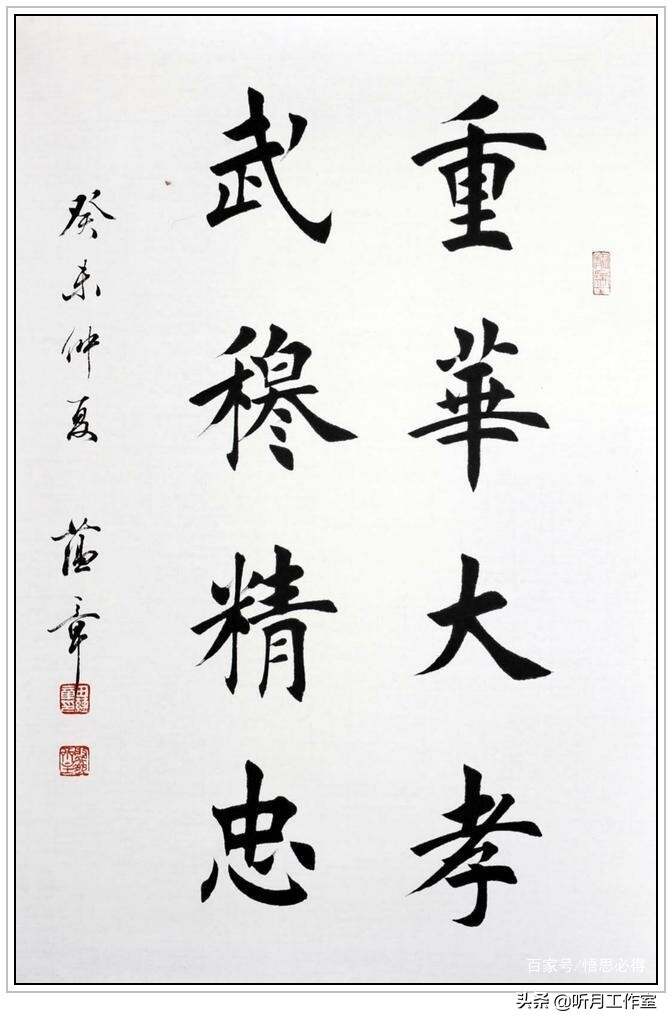 重華大孝
武穆精忠
癸未仲夏
蕴章
百家号/悟思必得
头条 @听月工作室